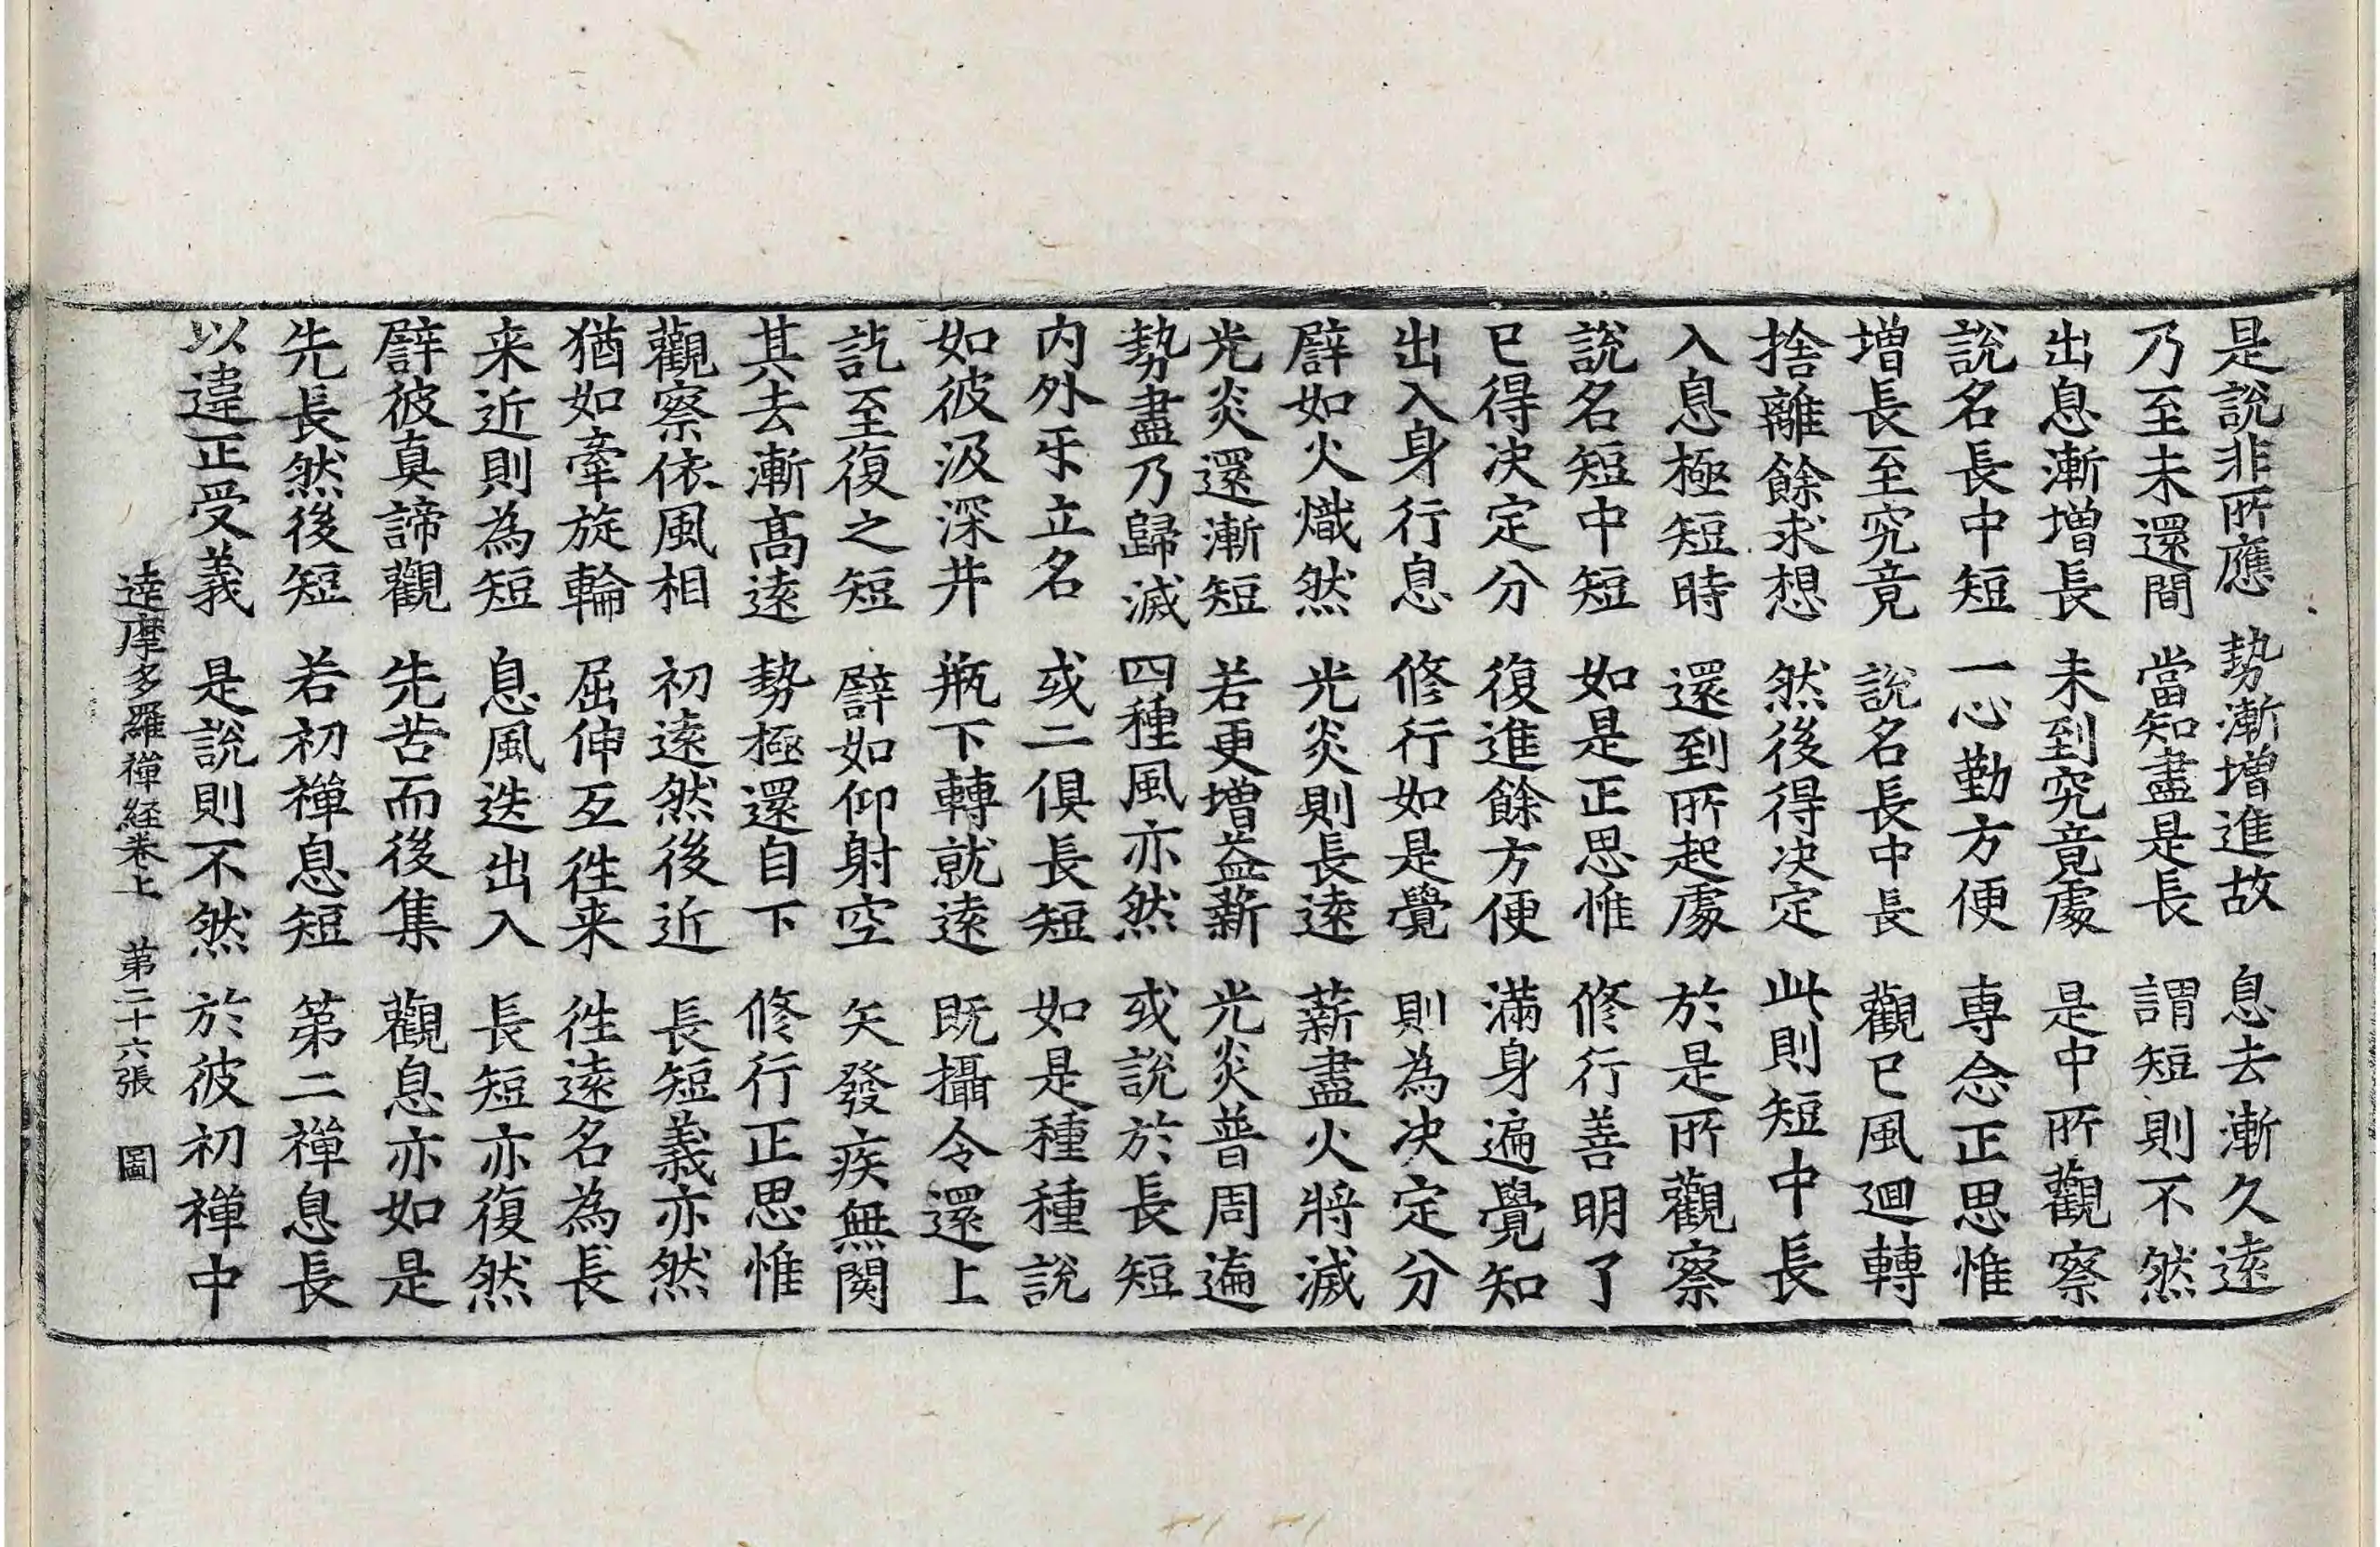 是說非所應　勢漸增進故　息去漸久遠
乃至未還間　當知盡是長　謂短則不然
出息漸增長　未到究竟處　是中所觀察
說名長中短　一心勤方便　專念正思惟
增長至究竟　說名長中長　觀已風迴轉
捨離餘求想　然後得決定　此則短中長
入息極短時　還到所起處　於是所觀察
說名短中短　如是正思惟　修行善明了
已得決定分　復進餘方便　滿身遍覺知
出入身行息　修行如是覺　則為決定分
譬如火熾然　光炎則長遠　薪盡火將滅
光炎還漸短　若更增益薪　光炎普周遍
勢盡乃歸滅　四種風亦然　或說於長短
内外㸦立名　或二俱長短　如是種種說
如彼汲深井　瓶下轉就遠　既攝令還上
訖至復之短　譬如仰射空　矢發疾無閡
其去漸高遠　勢極還自下　修行正思惟
觀察依風相　初遠然後近　長短義亦然
猶如牽旋輪　屈伸互徃来　徃遠名為長
来近則為短　息風迭出入　長短亦復然
譬彼真諦觀　先苦而後集　觀息亦如是
先長然後短　若初禅息短　第二禅息長
以違正受義　是說則不然　於彼初禅中
達摩多羅禅経卷上　第二十六張　圖